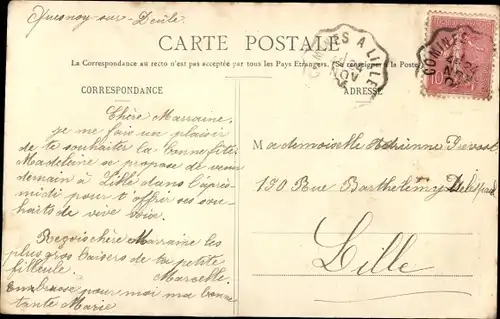 Quesnoy-sur-Deûle
CARTE POSTALE
La Correspondance au recto n'est pas acceptée par tous les Pays Étrangers. (Se renseigner à la Poste)
CORRESPONDANCE
ADRESSE
COMINES A LILLE
COMINES
10
Chère Marraine,
je me fais un plaisir
de te souhaiter la bonne fête
Madeleine se propose de venir
demain à Lille dans l'après-
midi pour t'offrir ses sou-
haits de vive voix.
Reçois chère Marraine les
plus gros baisers de ta petite
filleule Marcelle
Embrasse pour moi ma bonne
tante Marie
Mademoiselle Adrienne
190 Rue Barthélémy Delespaul
Lille